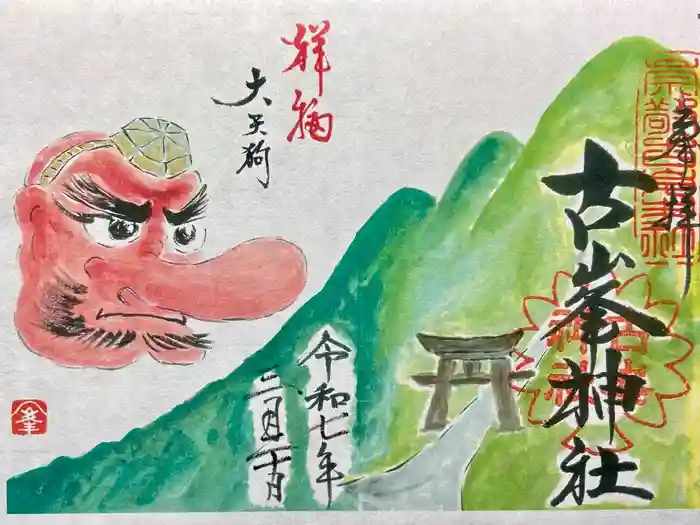 奉拝
古峯神社
祥禍
大天狗
令和七年
二月二十日